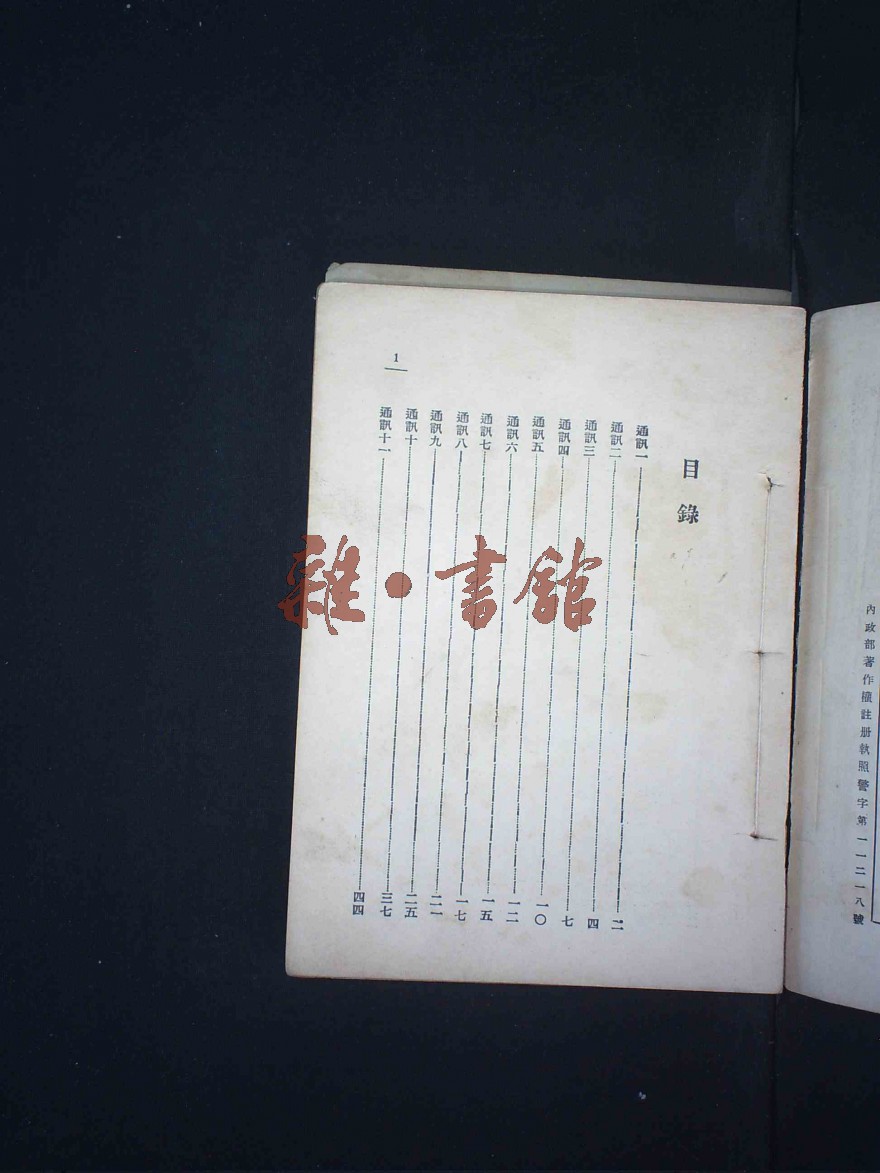 內政部著作權註册執照警字第一一二一八號
目錄
通訊一 二
通訊二 四
通訊三 七
通訊四 一〇
通訊五 一二
通訊六 一五
通訊七 一七
通訊八 二一
通訊九 二五
通訊十 三七
通訊十一 四四
1
雜·書館